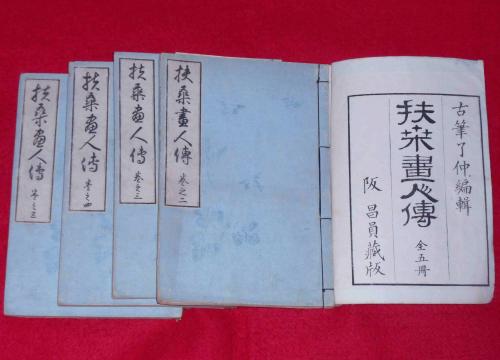 古筆了仲編輯
扶桑畫人傳
全五冊
阪昌員藏版
扶桑畫人傳
巻之二
扶桑畫人傳
巻之三
扶桑畫人傳
巻之四
扶桑畫人傳
巻之五